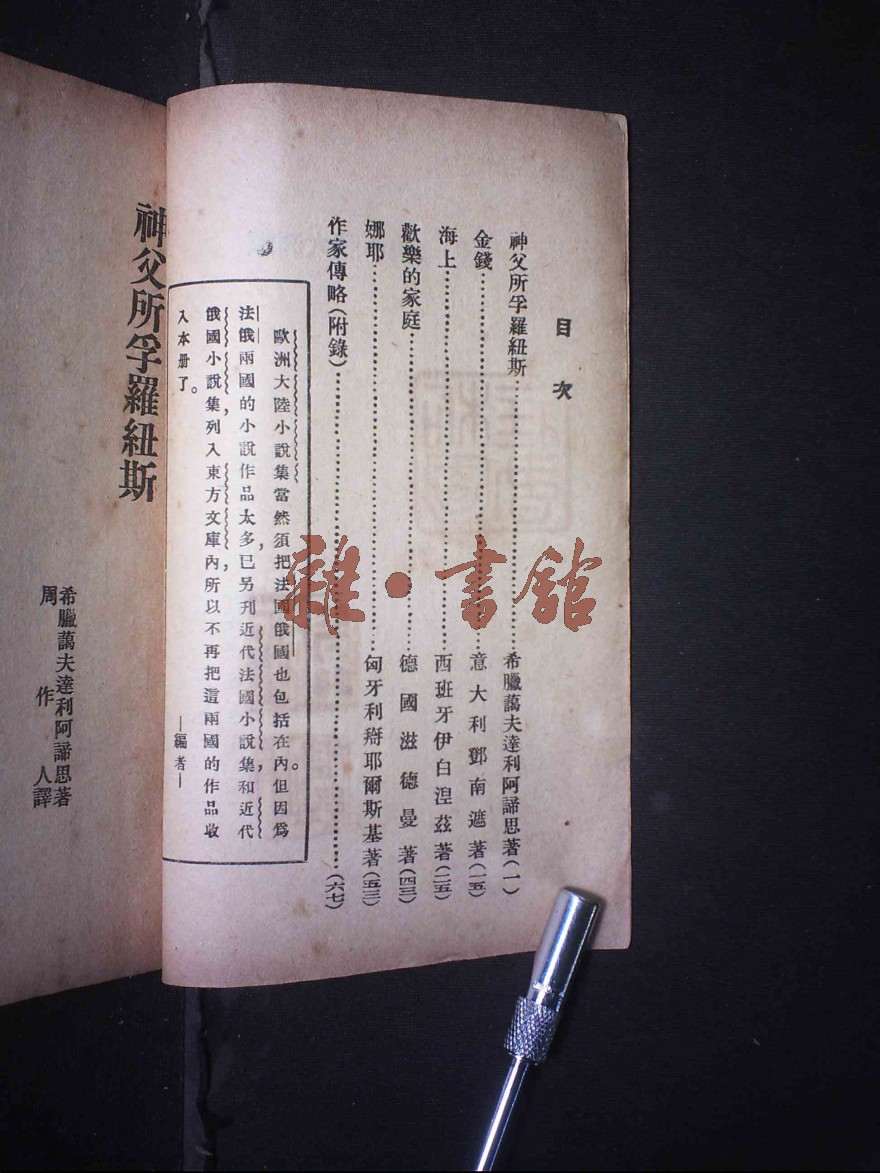 目次
神父所孚羅紐斯…………希臘藹夫達利阿諦思著(一)
金錢…………意大利鄧南遮著(一五)
海上…………西班牙伊白涅茲著(二五)
歡樂的家庭…………德國滋德曼著(四三)
娜耶…………匈牙利㢸耶爾斯基著(五三)
作家傳略(附錄)…………(六七)
歐洲大陸小說集當然須把法國俄國也包括在內。但因爲
法俄兩國的小說作品太多,已另刊近代法國小說集,和近代
俄國小說集,列入東方文庫內,所以不再把這兩國的作品收
入本册了。
—編者—
神父所孚羅紐斯
希臘藹夫達利阿諦思著
周作人譯
雜·書館